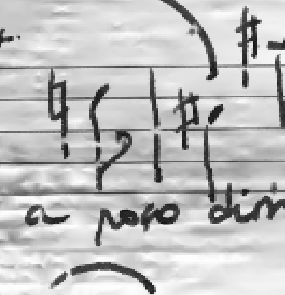 a poco dim